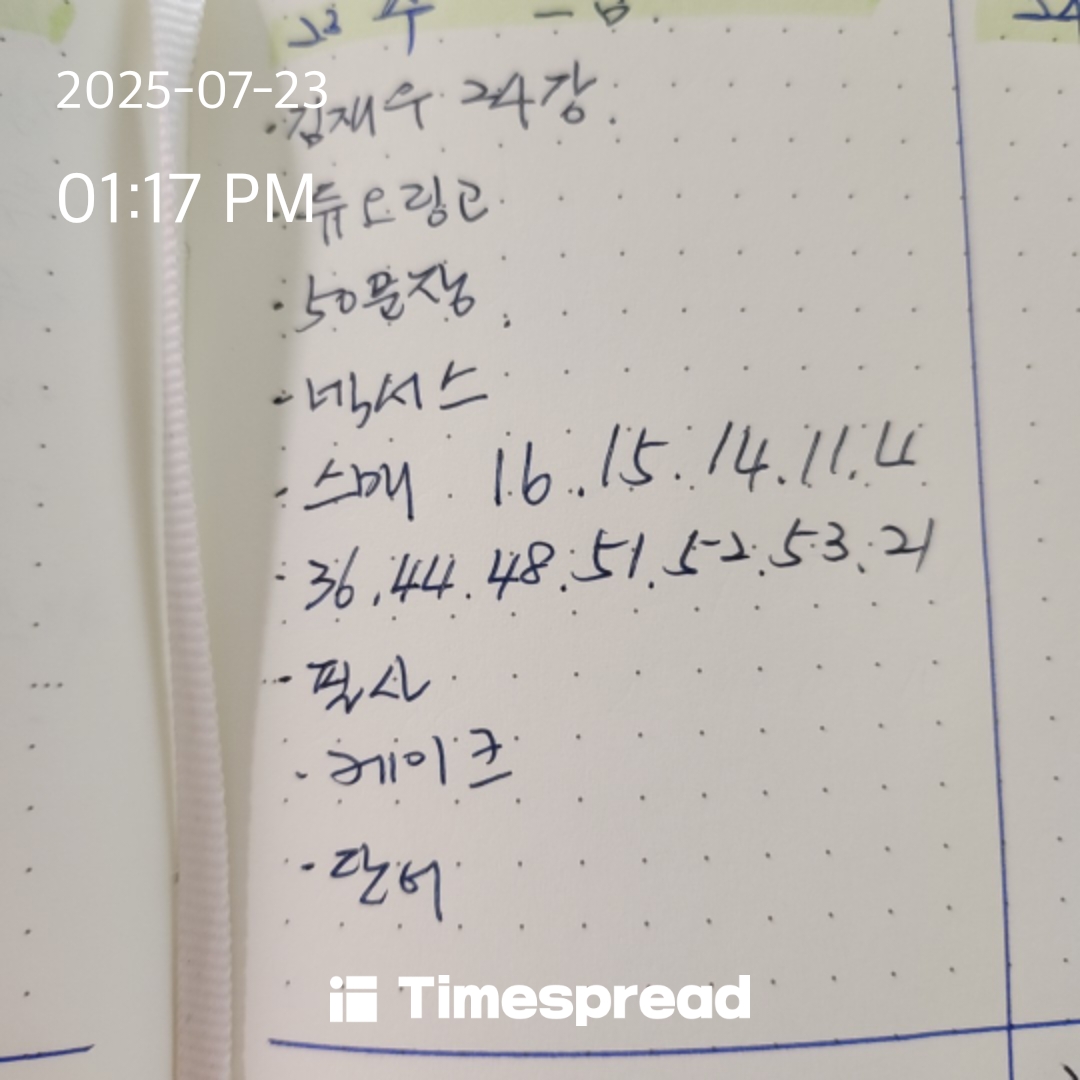 2025-07-23
01:17 PM
23 수
· 김재우 24강.
· 듀오링고
· 50문장.
· 넥서스
· 스매 16.15.14.11.4
· 36.44.48.51.52.53.21
· 필사
· 케이크
· 단어
Timespread